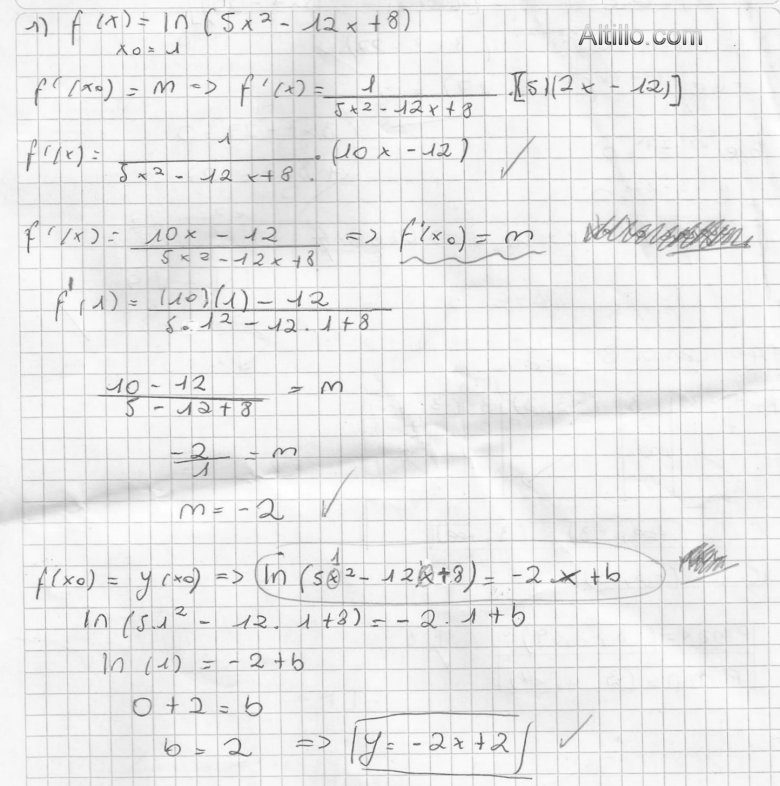 1) f(x) = ln (5x² - 12x + 8)
Altillo.com
x₀ = 1
f'(x₀) = m => f'(x) = 1/(5x² - 12x + 8) · [(5)(2x - 12)]
f'(x) = 1/(5x² - 12x + 8) · (10x - 12) ✓
f'(x) = (10x - 12)/(5x² - 12x + 8) => f'(x₀) = m
f'(1) = ((10)(1) - 12)/(5·1² - 12·1 + 8)
(10 - 12)/(5 - 12 + 8) = m
-2/1 = m
m = -2 ✓
f(x₀) = y(x₀) => ln (5x² - 12x + 8) = -2·x + b
ln (5·1² - 12·1 + 8) = -2·1 + b
ln (1) = -2 + b
0 + 2 = b
b = 2 => y = -2x + 2 ✓